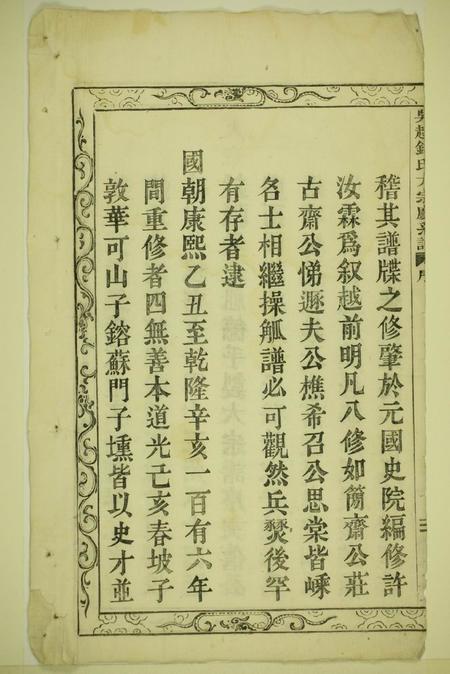 吳越錢氏大宗
序
稽其譜牒之修肇於元國史院編修許
汝霖爲叙越前明凡八修如簡齋公莊
古齋公悌遯夫公樵希召公思棠皆嵊
名士相繼操觚譜必可觀然兵燹後罕
有存者逮
國朝康熙乙丑至乾隆辛亥一百有六年
間重修者四無善本道光己亥春坡子
敦華可山子鎔蘇門子壎皆以史才並